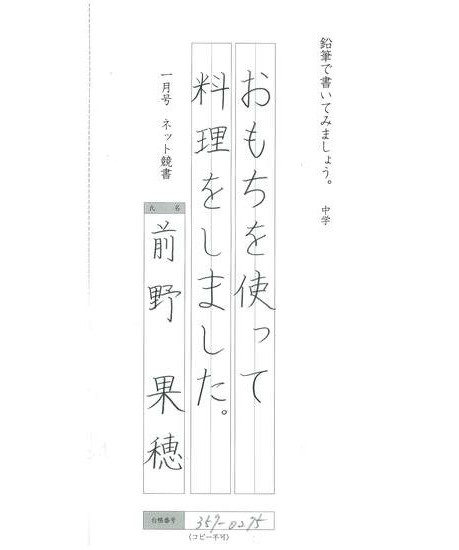 鉛筆で書いてみましょう。 中学
おもちを使って
料理をしました。
一月号 ネット競書
氏 名
前野 果穂
台帳番号 357-0275
〈コピー不可〉